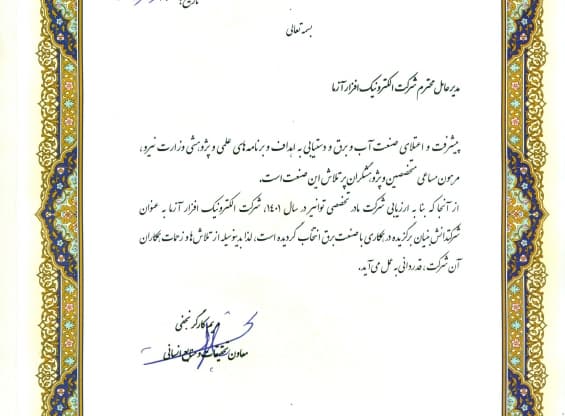 تاریخ:
بسمه تعالی
مدیرعامل محترم شرکت الکترونیک افزار آزما
پیشرفت و اعتلای صنعت آب و برق و دستیابی به اهداف و برنامه های علمی و پژوهشی وزارت نیرو،
مرهون مساعی متخصصین و پژوهشگران پرتلاش این صنعت است.
از آنجا که بنا به ارزیابی شرکت مادر تخصصی توانیر در سال ۱۴۰۱، شرکت الکترونیک افزار آزما به عنوان
شرکت دانش بنیان برگزیده در همکاری با صنعت برق انتخاب گردیده است، لذا بدینوسیله از تلاش ها و زحمات همکاران
آن شرکت، قدردانی به عمل می آید.
کارگر نجفی
معاون تحقیقات و منابع انسانی